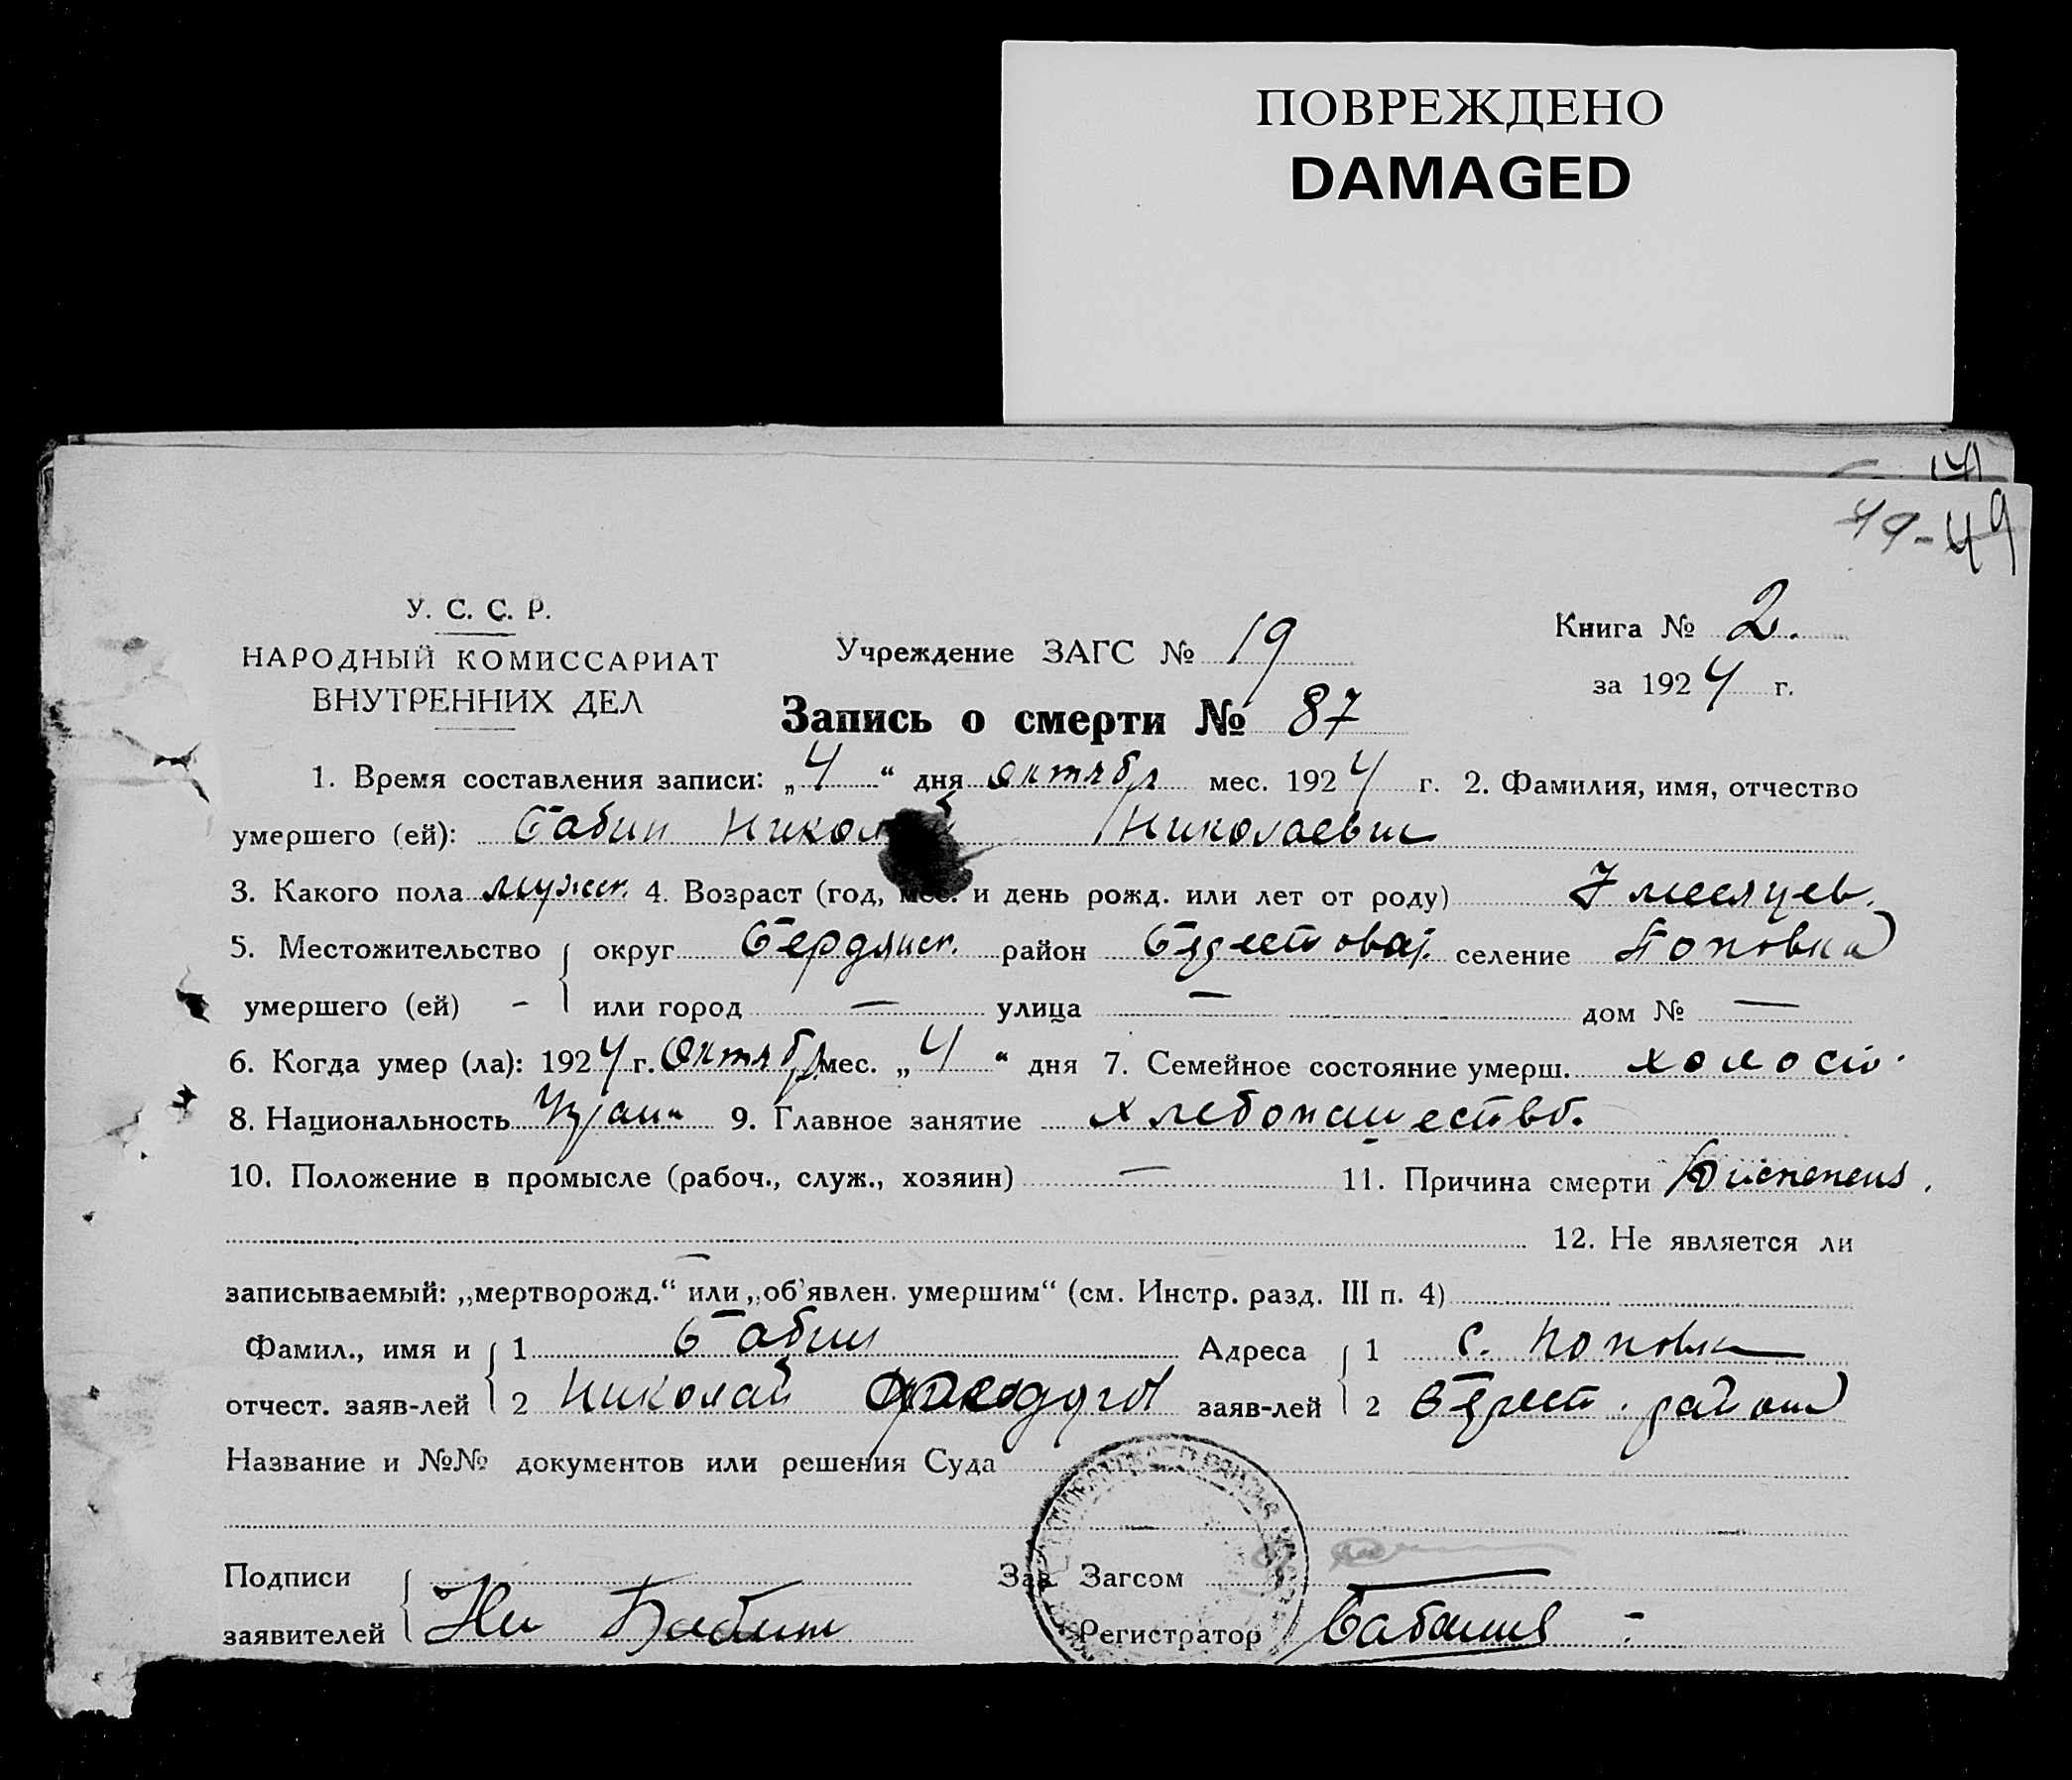 ПОВРЕЖДЕНО
DAMAGED
49-49
У. С. С. Р.
НАРОДНЫЙ КОМИССАРИАТ
ВНУТРЕННИХ ДЕЛ
Учреждение ЗАГС № 19
Книга № 2.
за 1924 г.
Запись о смерти № 87
1. Время составления записи: „4“ дня октября мес. 1924 г. 2. Фамилия, имя, отчество
умершего (ей): Бабин Николай Николаевич
3. Какого пола мужск. 4. Возраст (год, мес. и день рожд. или лет от роду) 7 месяцев.
5. Местожительство округ Бердянск. район селение Поповка
умершего (ей) - или город — улица — дом № —
6. Когда умер (ла): 1924 г. Октябр мес. „4“ дня 7. Семейное состояние умерш. холост.
8. Национальность 9. Главное занятие хлебопашество.
10. Положение в промысле (рабоч., служ., хозяин) — 11. Причина смерти Диспепсия.
12. Не является ли
записываемый: „мертворожд.“ или „об'явлен. умершим“ (см. Инстр. разд. III п. 4)
Фамил., имя и 1 Бабин Адреса 1 с. Поповка
отчест. заяв-лей 2 Николай заяв-лей 2 район
Название и №№ документов или решения Суда
Подписи Зав. Загсом
заявителей Ни Бабин Регистратор